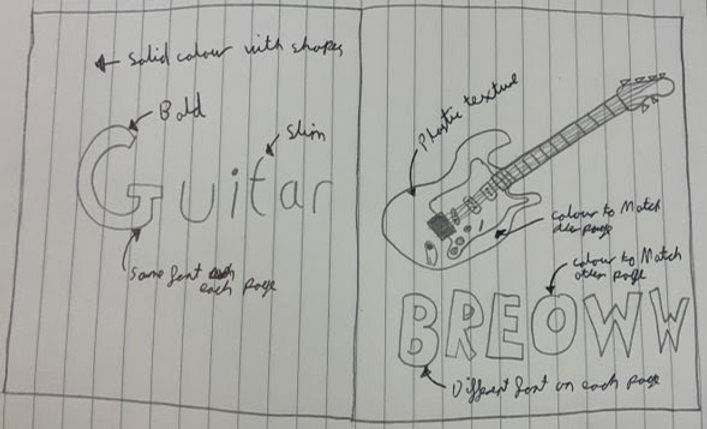 ← Solid colour with shapes
Bold
Slim
Guitar
Same font
each page
Plastic texture
colour to Match
page
colour to Match
other page
BREOWW
Different font on each page